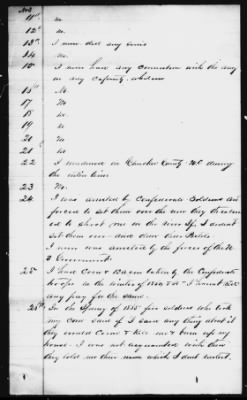 11th no.
12th no.
13th I never did any
14 no.
15 I never had any connection with the army in any capacity whatever
16 No
17 No
18 no
19 no
20 no
21 no
22 I remained in County N.C. during the entire time
23 No.
24 I was arrested by Confederate Soldiers and
forced to set them over the river they threatened
to shoot me in the river if I didnt
set them over
I never was arrested by the forces of the U.
S. Government
25 I had Corn & Bacon taken by the Confederate
troops in the winter of I never
any pay for the same.
26th In the Spring of 1865 five soldiers who took
my corn said if I said any thing about it
they would come & kill me & burn up my
house. I was not acquainted with them
they told me their names which I dont recollect.